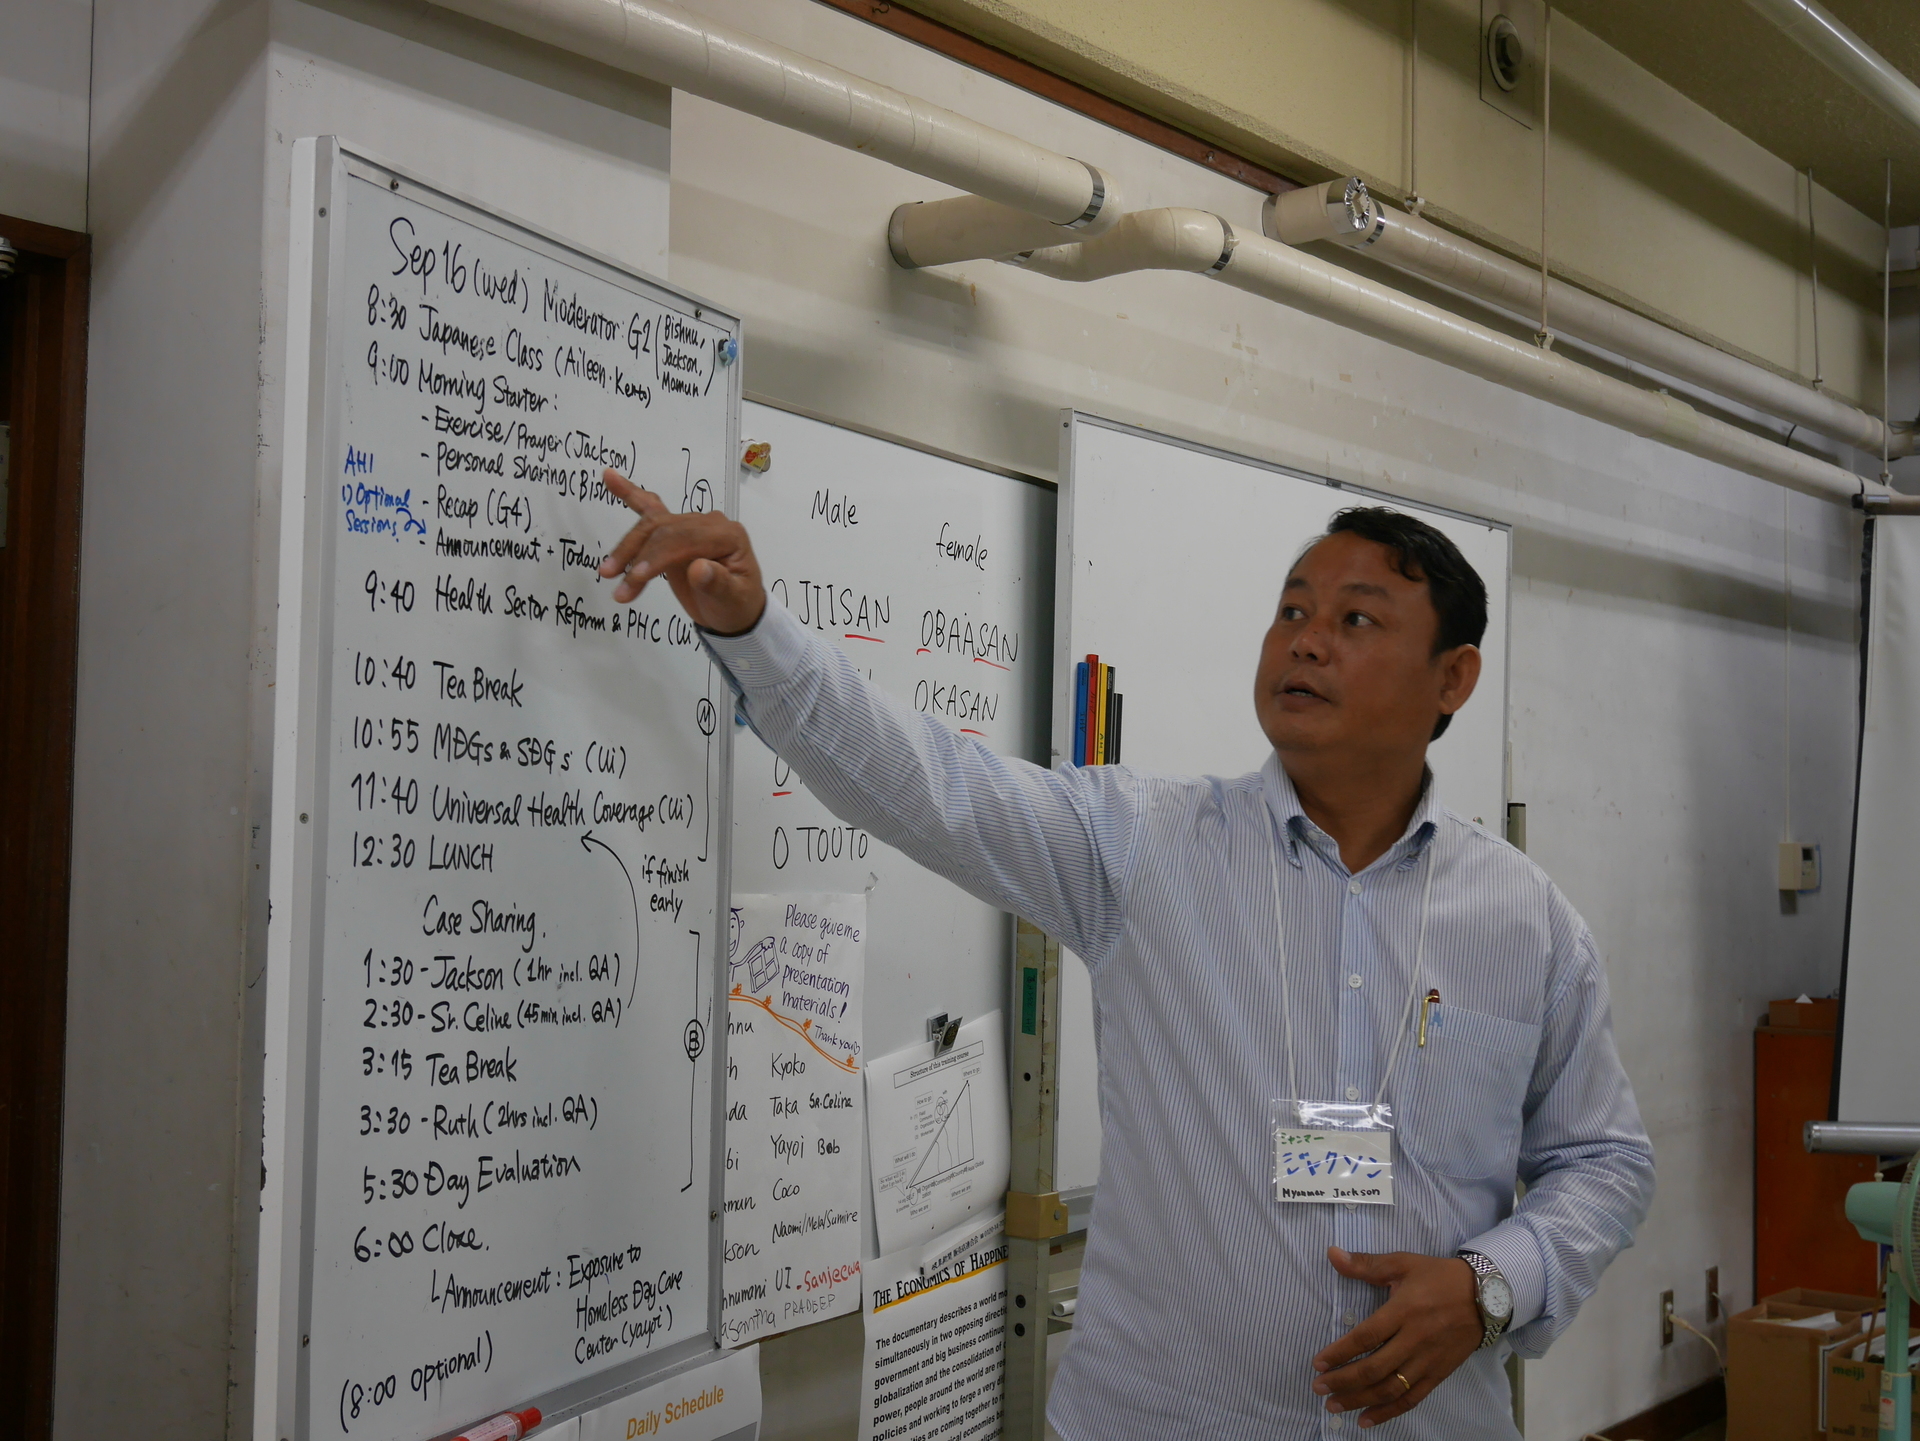 Sep 16 (wed) Moderator: G2 (Bishnu, Jackson, Mamun)
8:30 Japanese Class (Aileen・Kento)
9:00 Morning Starter:
- Exercise/Prayer (Jackson)
- Personal Sharing (Bishnu)
- Recap (G4)
- Announcement + Today's
AHI
1) Optional
Sessions.
J
9:40 Health Sector Reform & PHC (Ui)
10:40 Tea Break
10:55 MDGs & SDGs (Ui)
11:40 Universal Health Coverage (Ui)
12:30 LUNCH
M
if finish
early
Case Sharing.
1:30 - Jackson (1hr incl. QA)
2:30 - Sr. Celine (45min incl. QA)
3:15 Tea Break
3:30 - Ruth (2hrs incl. QA)
5:30 Day Evaluation
B
6:00 Close.
Announcement: Exposure to
Homeless Day Care
Center (yayoi)
(8:00 optional)
Daily Schedule
Male female
OJIISAN OBAASAN
OKASAN
O
OTOUTO
AHI
Please give me
a copy of
presentation
materials!
Thank you
hnu
h Kyoko
da Taka Sr.Celine
bi Yayoi Bob
mun Coco
Naomi/Mela/Sumire
kson
hnumani UI - Sanjeewa
asantha PRADEEP
Structure of this training course
THE ECONOMICS OF HAPPINE
The documentary describes a world mo
simultaneously in two opposing directi
government and big business continue
globalization and the consolidation of
power, people around the world are re
policies and working to forge a very di
ities are coming together to r
ミャンマー
ジャクソン
Myanmar Jackson
meiji